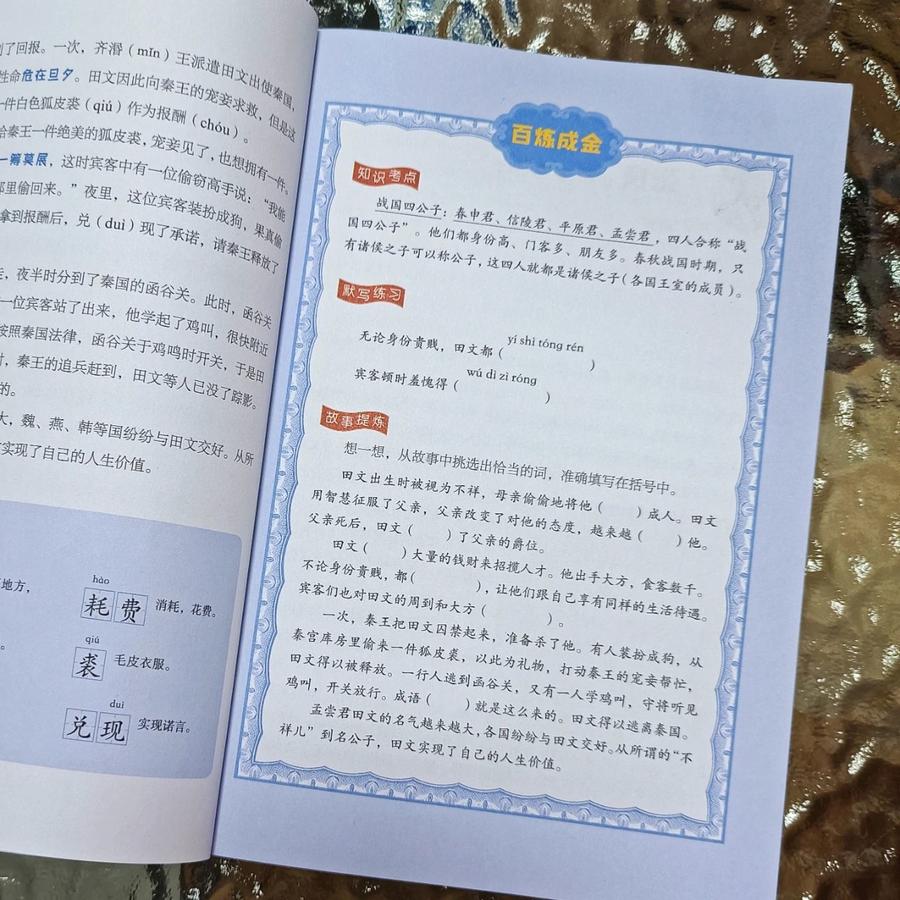 到了回报。一次，齐湣（mǐn）王派遣田文出使秦国，
性命危在旦夕。田文因此向秦王的宠妾求救，但是这
一件白色狐皮裘（qiú）作为报酬（chóu）。
给秦王一件绝美的狐皮裘，宠妾见了，也想拥有一件。
一筹莫展，这时宾客中有一位偷窃高手说：“我能
那里偷回来。”夜里，这位宾客装扮成狗，果真偷
拿到报酬后，兑（duì）现了承诺，请秦王释放了
，夜半时分到了秦国的函谷关。此时，函谷关
一位宾客站了出来，他学起了鸡叫，很快附近
按照秦国法律，函谷关于鸡鸣时开关，于是田
时，秦王的追兵赶到，田文等人已没了踪影。
的。
大，魏、燕、韩等国纷纷与田文交好。从所
实现了自己的人生价值。
地方，
hào
耗费 消耗，花费。
qiú
裘 毛皮衣服。
duì
兑现 实现诺言。
百炼成金
知识考点
战国四公子：春申君、信陵君、平原君、孟尝君，四人合称“战
国四公子”。他们都身份高、门客多、朋友多。春秋战国时期，只
有诸侯之子可以称公子，这四人就都是诸侯之子（各国王室的成员）。
默写练习
yí shì tóng rén
无论身份贵贱，田文都（ ）
wú dì zì róng
宾客顿时羞愧得（ ）
故事提炼
想一想，从故事中挑选出恰当的词，准确填写在括号中。
田文出生时被视为不祥，母亲偷偷地将他（ ）成人。田文
用智慧征服了父亲，父亲改变了对他的态度，越来越（ ）他。
父亲死后，田文（ ）了父亲的爵位。
田文（ ）大量的钱财来招揽人才。他出手大方，食客数千。
不论身份贵贱，都（ ），让他们跟自己享有同样的生活待遇。
宾客们也对田文的周到和大方（ ）。
一次，秦王把田文囚禁起来，准备杀了他。有人装扮成狗，从
秦宫库房里偷来一件狐皮裘，以此为礼物，打动秦王的宠妾帮忙，
田文得以被释放。一行人逃到函谷关，又有一人学鸡叫，守将听见
鸡叫，开关放行。成语（ ）就是这么来的。田文得以逃离秦国。
孟尝君田文的名气越来越大，各国纷纷与田文交好。从所谓的“不
祥儿”到名公子，田文实现了自己的人生价值。